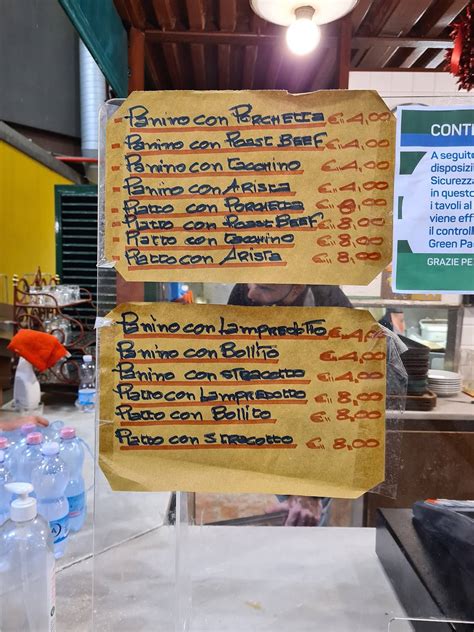 Panino con Porchetta €4,00
Panino con Roast Beef €4,00
Panino con Tacchino €4,00
Panino con Arista €4,00
Piatto con Porchetta €8,00
Piatto con Roast Beef €8,00
Piatto con Tacchino €8,00
Piatto con Arista €8,00
Panino con Lampredotto €4,00
Panino con Bollito €4,00
Panino con Stracotto €4,00
Piatto con Lampredotto €8,00
Piatto con Bollito €8,00
Piatto con Stracotto €8,00
CONT
A seguito
disposizi
Sicurezza
in questo
i tavoli al
viene eff
il control
Green Pa
GRAZIE PE